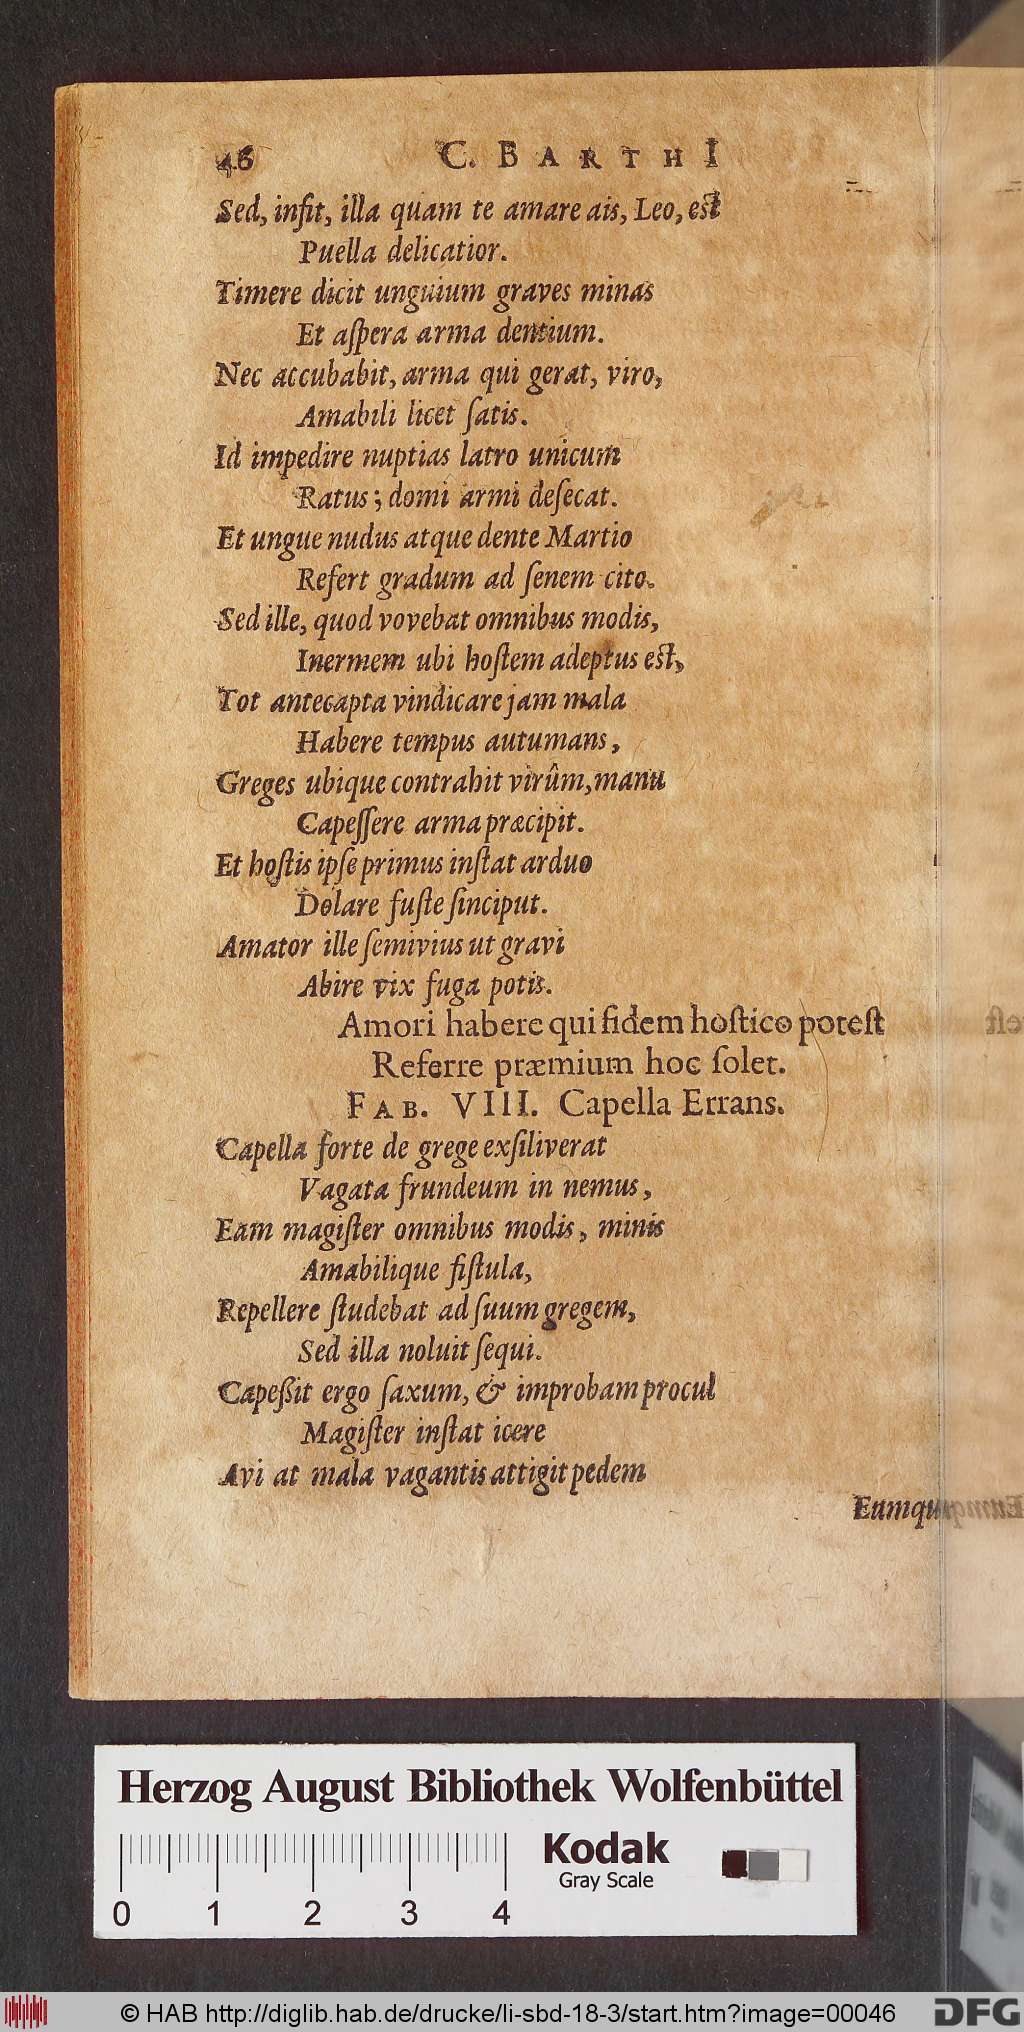 46 C. BARTHI
Sed, infit, illa quam te amare ais, Leo, est
Puella delicatior.
Timere dicit unguium graves minas
Et aſpera arma dentium.
Nec accubabit, arma qui gerat, viro,
Amabili licet ſatis.
Id impedire nuptias latro unicum
Ratus; domi armi deſecat.
Et ungue nudus atque dente Martio
Refert gradum ad ſenem cito.
Sed ille, quod vovebat omnibus modis,
Inermem ubi hoſtem adeptus eſt,
Tot antecapta vindicare jam mala
Habere tempus autumans,
Greges ubique contrahit virûm, manu
Capeſſere arma præcipit.
Et hoſtis ipſe primus inſtat arduo
Dolare fuſte ſinciput.
Amator ille ſemivius ut gravi
Abire vix fuga potis.
Amori habere qui fidem hoſtico poteſt
Referre præmium hoc ſolet.
FAB. VIII. Capella Errans.
Capella forte de grege exſiliverat
Vagata frundeum in nemus,
Eam magiſter omnibus modis, minis
Amabilique fiſtula,
Repellere ſtudebat ad ſuum gregem,
Sed illa noluit ſequi.
Capeßit ergo ſaxum, & improbam procul
Magiſter inſtat icere
Avi at mala vagantis attigit pedem
Eumqu
Herzog August Bibliothek Wolfenbüttel
Kodak
Gray Scale
0 1 2 3 4
© HAB http://diglib.hab.de/drucke/li-sbd-18-3/start.htm?image=00046 DFG